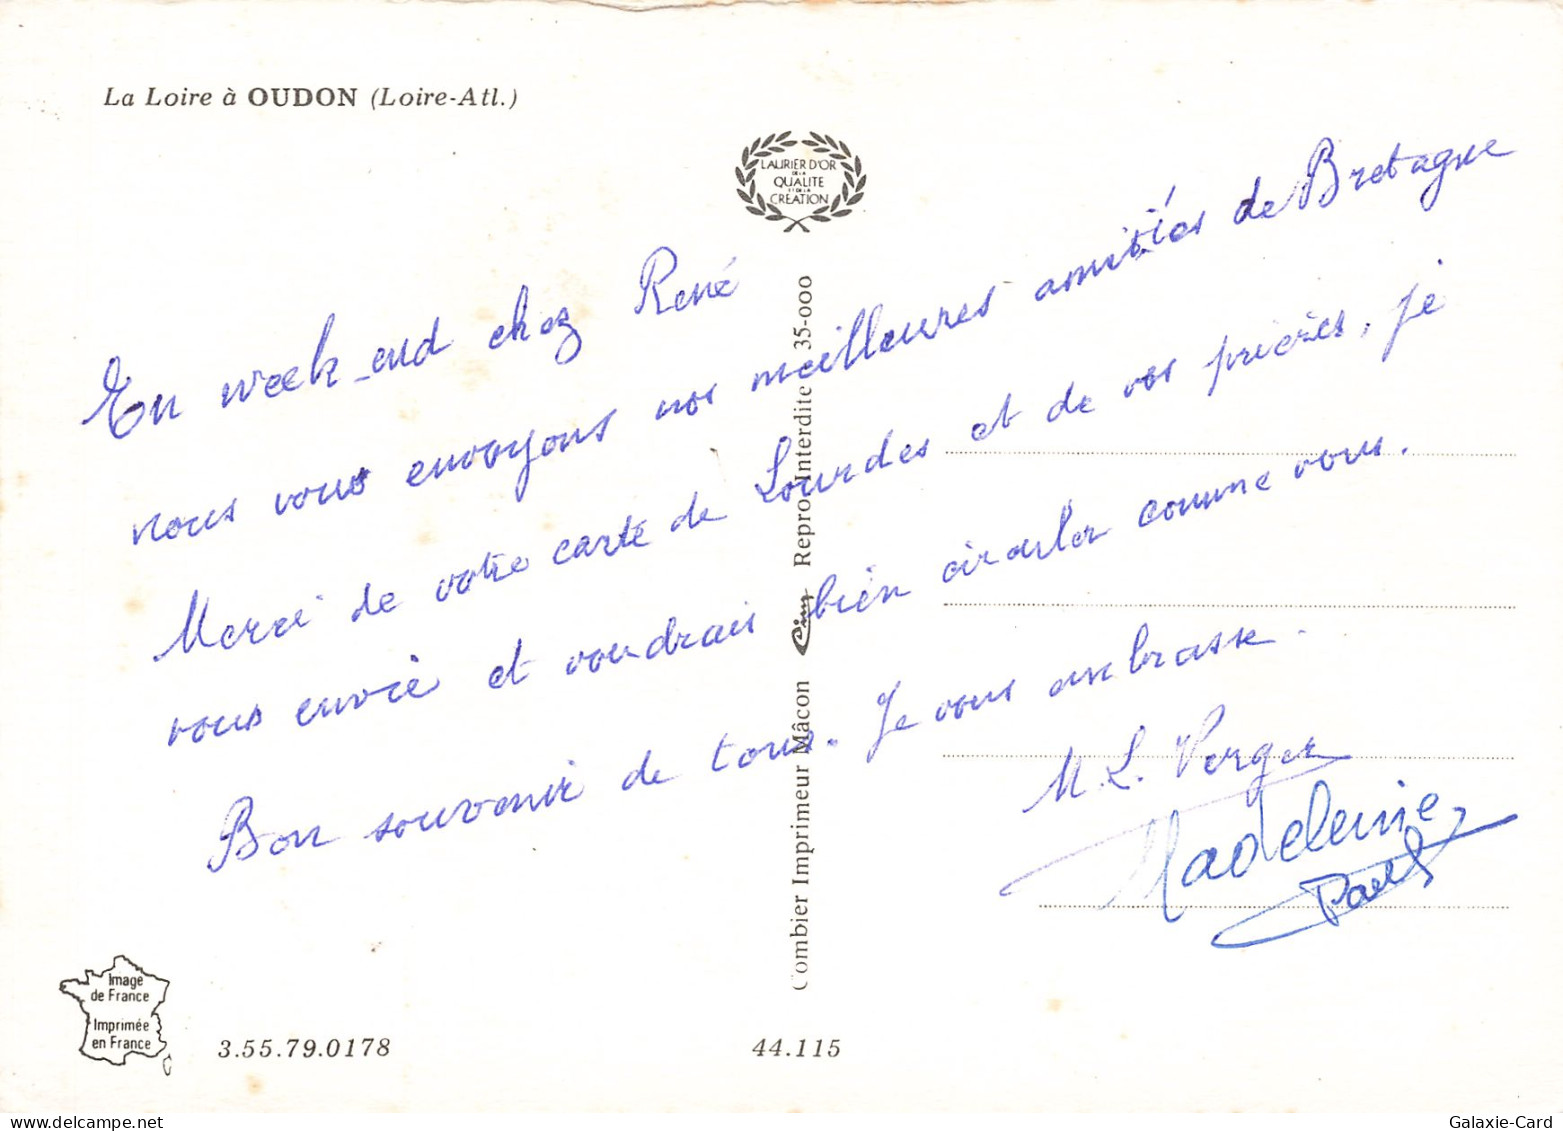 La Loire à OUDON (Loire-Atl.)
LAURIER D'OR
DE LA
QUALITE
ET DE LA
CRÉATION
En week-end chez René
nous vous envoyons nos meilleures amitiés de Bretagne
Merci de votre carte de Lourdes et de vos prières, je
vous envie et voudrais bien circuler comme vous.
Bon souvenir de tous. Je vous embrasse.
M. L. Verger
Madeleine
Paul
Combier Imprimeur Mâcon Cim Repro. Interdite 35-000
Image
de France
Imprimée
en France
3.55.79.0178
44.115
Galaxie-Card